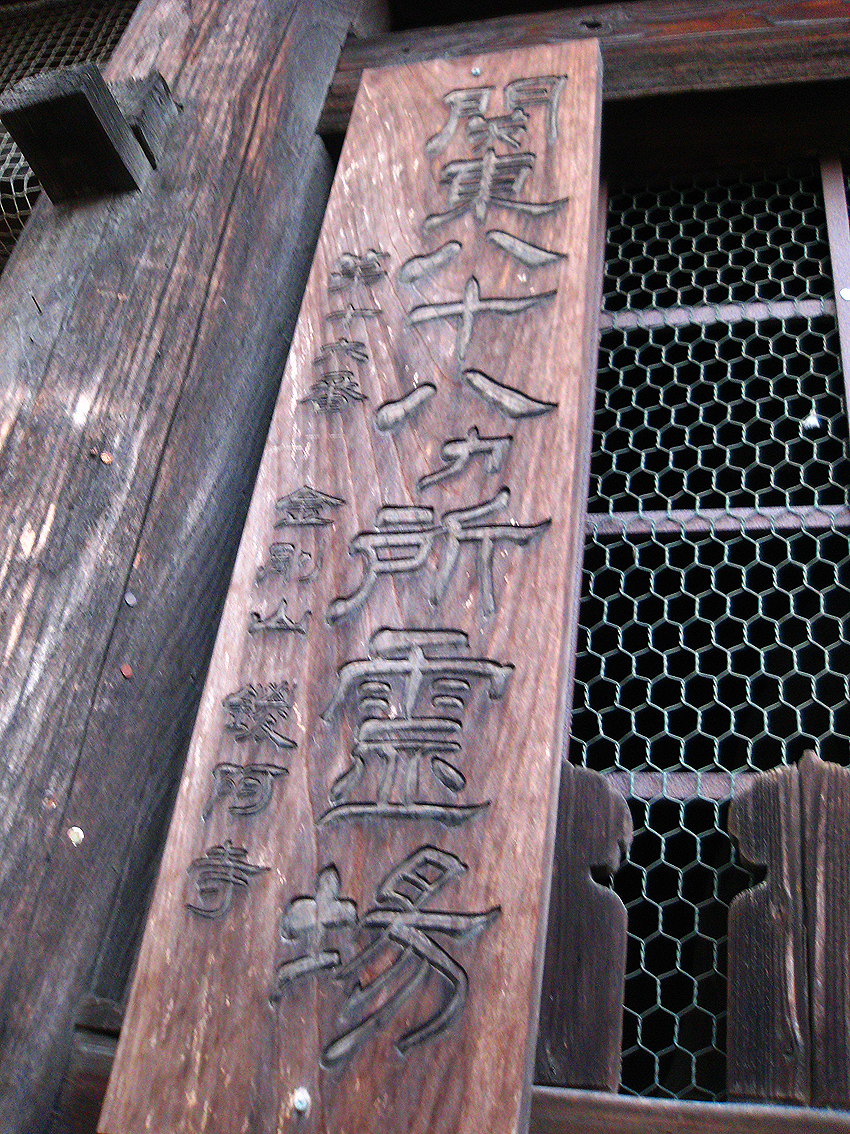 関東八十八ヵ所霊場
第十六番 金剛山 鑁阿寺